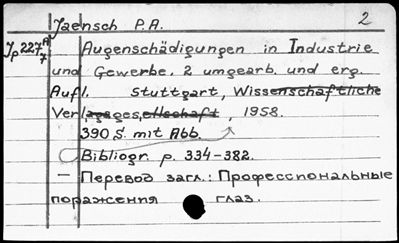 Jaensch P.A. 2
Jp 227A/7 Augenschädigungen in Industrie
und Gewerbe. 2 umgearb. und erg.
Aufl. Stuttgart, Wissenschaftliche
Verlagsgesellschaft, 1958.
390 S. mit Abb.
Bibliogr. p. 334-382.
— Перевод загл.: Профессиональные
поражения глаз.